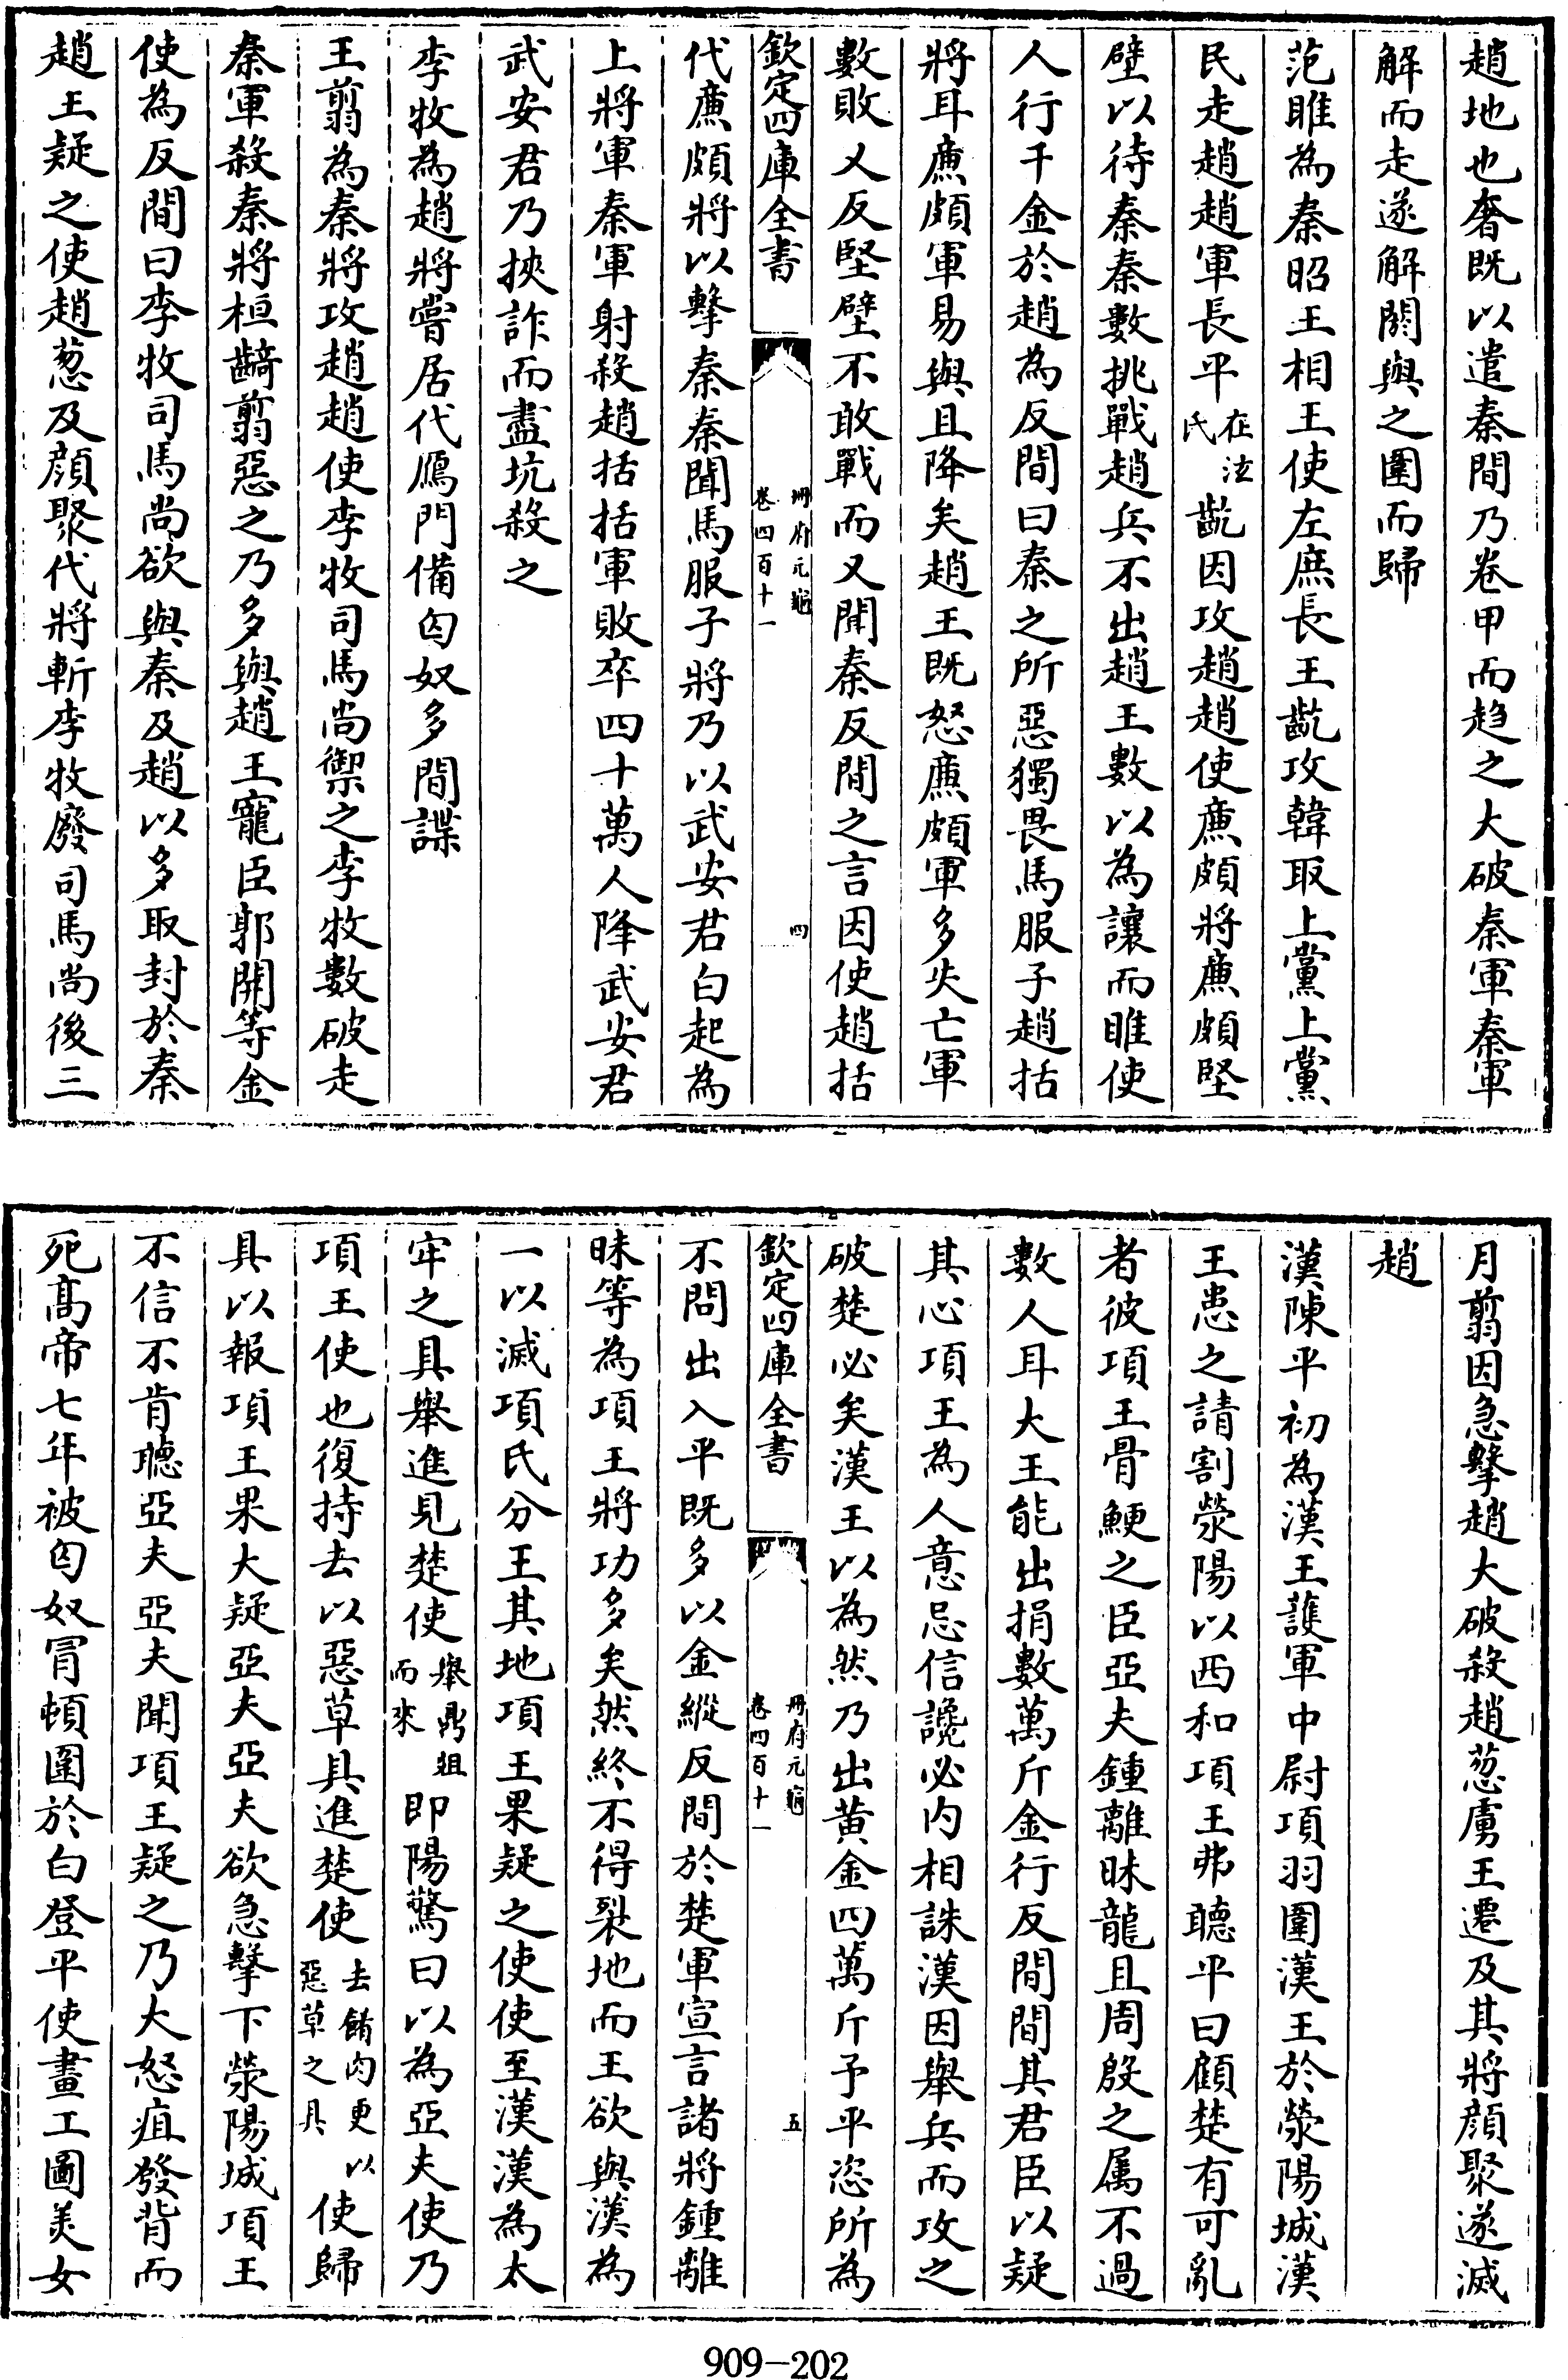 趙地也奢既以遣秦間乃卷甲而趋之大破秦軍秦軍
解而走遂解閼與之圍而歸
范睢為秦昭王相王使左庶長王齕攻韓取上黨上黨
民走趙趙軍長平在泫氏齕因攻趙趙使廉頗將廉頗堅
壁以待秦秦數挑戰趙兵不出趙王數以為讓而睢使
人行千金於趙為反間曰秦之所惡獨畏馬服子趙括
將耳廉頗軍易與且降矣趙王既怒廉頗軍多失亡軍
數敗乂反堅壁不敢戰而又聞秦反間之言因使趙括
欽定四庫全書
冊府元龜
卷四百十一
四
代廉頗將以擊秦秦聞馬服子將乃以武安君白起為
上將軍秦軍射殺趙括括軍敗卒四十萬人降武安君
武安君乃挾詐而盡坑殺之
李牧為趙將嘗居代鴈門備匈奴多間諜
王翦為秦將攻趙趙使李牧司馬尚禦之李牧數破走
秦軍殺秦將桓齮翦惡之乃多與趙王寵臣郭開等金
使為反間曰李牧司馬尚欲與秦及趙以多取封於秦
趙王疑之使趙葱及顔聚代將斬李牧廢司馬尚後三
月翦因急擊趙大破殺趙葱虜王遷及其將顔聚遂滅
趙
漢陳平初為漢王䕶軍中尉項羽圍漢王於滎陽城漢
王患之請割滎陽以西和項王弗聴平曰顧楚有可亂
者彼項王骨鯁之臣亞夫鍾離昧龍且周殷之属不過
數人耳大王能出捐數萬斤金行反間間其君臣以疑
其心項王為人意忌信讒必内相誅漢因舉兵而攻之
破楚必矣漢王以為然乃出黄金四萬斤予平恣所為
欽定四庫全書
冊府元龜
卷四百十一
五
不問出入平既多以金縱反間於楚軍宣言諸將鍾離
昧等為項王將功多矣然終不得裂地而王欲與漢為
一以滅項氏分王其地項王果疑之使使至漢漢為太
牢之具舉進見楚使舉鼎俎而來即陽驚曰以為亞夫使乃
項王使也復持去以惡草具進楚使去餚肉更以惡草之具使歸
具以報項王果大疑亞夫亞夫欲急擊下滎陽城項王
不信不肯聴亞夫亞夫聞項王疑之乃大怒疽發背而
死髙帝七年被匈奴冐頓圍於白登平使畫工圖美女
909-202